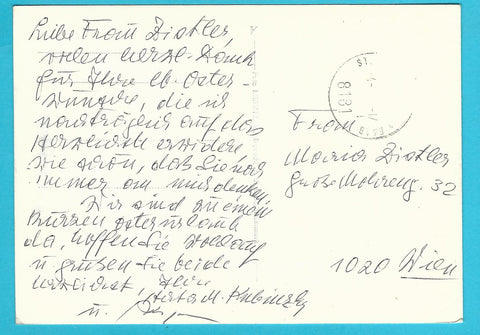 Liebe Frau Distler,
vielen herzl. Dank
für Ihre lb. Oster-
wünsche, die ich
nachträglich auf das
herzlichste erwidere
wie schön, daß Sie noch
immer an uns denken.
Wir sind zu einem
kurzen Osterurlaub
da, hoffen Sie wohlauf
u. grüßen Sie beide
herzlichst, Ihre
M. Kubinzky
u.
8181
Frau
Maria Distler
Große Mohreng. 32
1020 Wien